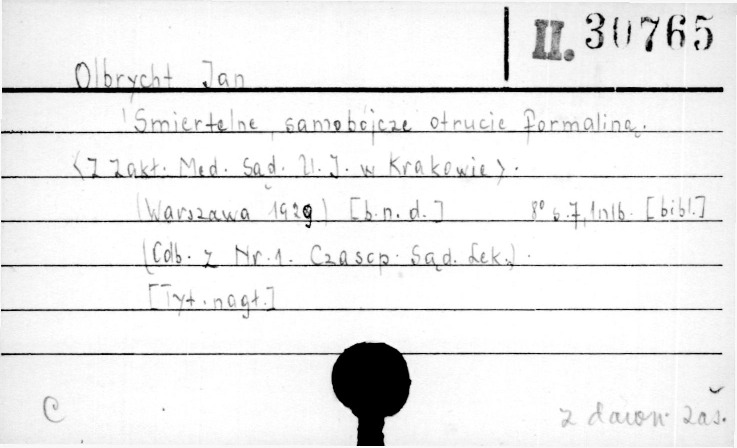 II. 30765
Olbrycht Jan
Śmiertelne samobójcze otrucie formaliną.
<Z Zakł. Med. Sąd. U. J. w Krakowie>.
(Warszawa 1929) [b.n.d.] 8° s. 7, 1nlb. [bibl.]
(Odb. z Nr. 1. Czasop. Sąd. Lek.).
[Tyt. nagł.]
C z dawn. zas.